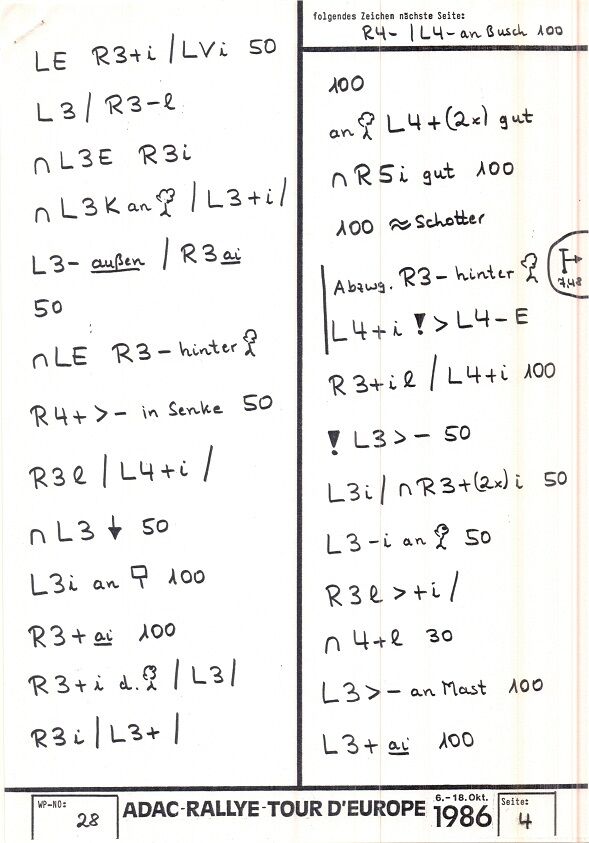 LE R3+i / LVi 50
L3 / R3-l
∩ L3E R3i
∩ L3K an / L3+i /
L3- außen / R3 ai
50
∩ LE R3- hinter
R4+ > - in Senke 50
R3l / L4+i /
∩ L3 ↓ 50
L3i an 100
R3+ ai 100
R3+i d. / L3 /
R3i / L3+ /
folgendes Zeichem nächste Seite:
R4- / L4- an Busch 100
100
an L4+(2x) gut
∩ R5i gut 100
100 ≈ Schotter
Abzwg. R3- hinter
7,48
L4+i ! > L4-E
R3+il / L4+i 100
! L3 > - 50
L3i / ∩ R3+(2x) i 50
L3-i an 50
R3l > +i /
∩ 4+l 30
L3 > - an Mast 100
L3+ ai 100
WP-NO: 28
ADAC-RALLYE-TOUR D'EUROPE 6.-18. Okt. 1986
Seite: 4